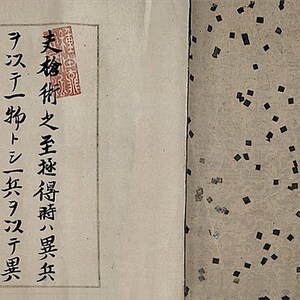 夫槍術之至極得時ハ異兵
ヲ以テ一物トシ一兵ヲ以テ異